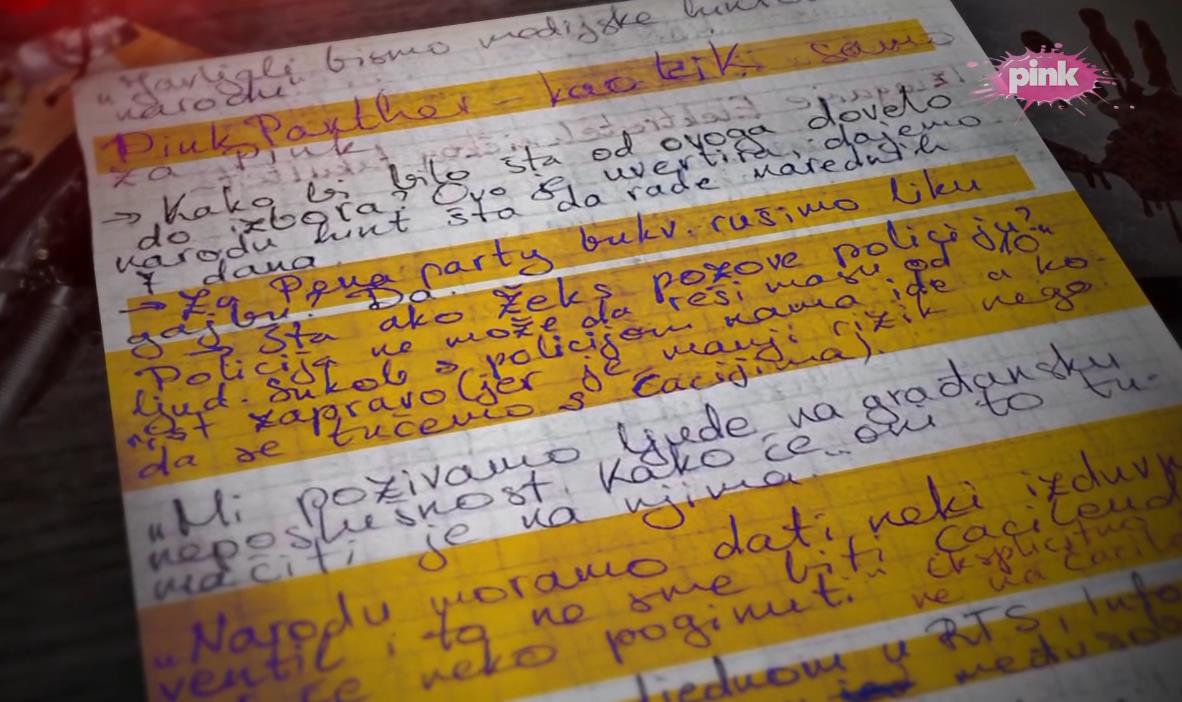 „Javljali bismo medijske
narodu"
Pink Panther - kao trik samo
za pink
→ Kako bi bilo šta od ovoga dovelo
do izbora? Ovo je uvertira, dajemo
narodu hint šta da rade narednih
7 dana.
→ Za Pena party bukv. rušimo liku
gajbu. Da.
→ Šta ako žeks pozove policiju?
Policija ne može da reši masu od 10
ljud. Sukob s policijom nama ide a ko-
rist zapravo (jer je manji rizik nego
da se tučemo s ćacijima)
„Mi pozivamo ljude na građansku
neposlušnost. Kako će oni to tu-
mačiti je na njima."
„Narodu moramo dati neki izduvn
ventil i to ne sme biti Ćacilend
će neko poginuti." eksplicitno
ne na Ćacile
jednom u RTS, Info
pink